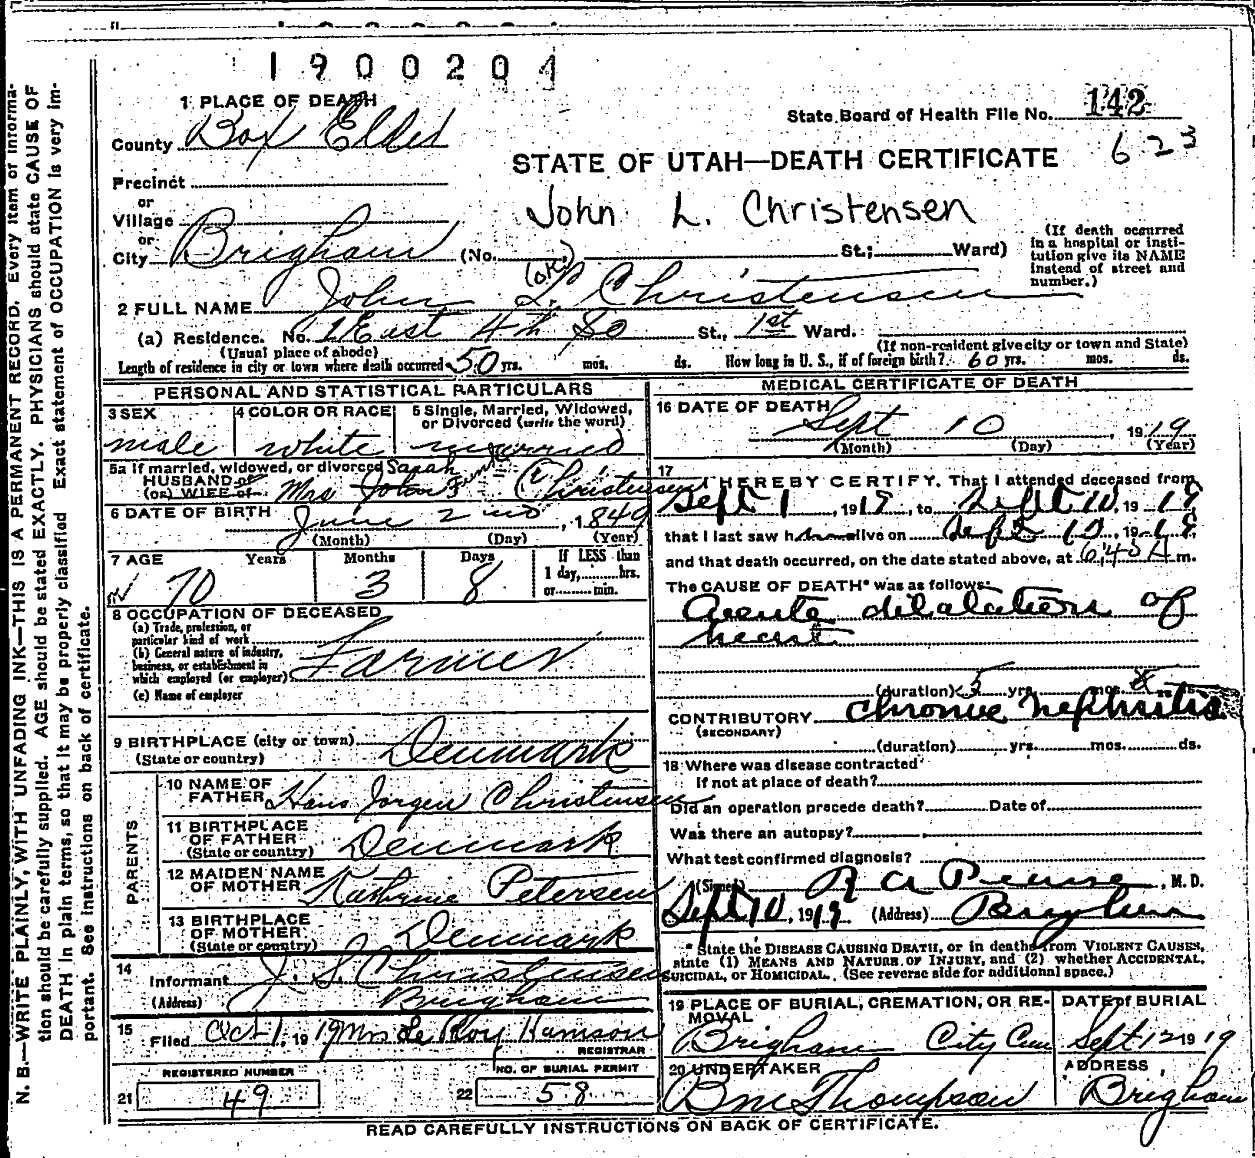 1900204
1 PLACE OF DEATH
State Board of Health File No. 142
County Box Elder
STATE OF UTAH—DEATH CERTIFICATE 623
Precinct
or
Village
John L. Christensen
or
City Brigham (No. St.; Ward)
(If death occurred in a hospital or institution give its NAME instead of street and number.)
(OK.)
2 FULL NAME John L. Christensen
(a) Residence. No. 1 East 4th So St., 1st Ward.
(Usual place of abode) (If non-resident give city or town and State)
Length of residence in city or town where death occurred 50 yrs. mos. ds. How long in U. S., if of foreign birth? 60 yrs. mos. ds.
PERSONAL AND STATISTICAL PARTICULARS
3 SEX 4 COLOR OR RACE 5 Single, Married, Widowed, or Divorced (write the word)
male white married
5a If married, widowed, or divorced Sarah
HUSBAND of
(or) WIFE of Mrs John Christensen
6 DATE OF BIRTH June 2nd, 1849
(Month) (Day) (Year)
7 AGE Years Months Days If LESS than
1 day, hrs.
or min.
70 3 8
8 OCCUPATION OF DECEASED
(a) Trade, profession, or
particular kind of work
(b) General nature of industry,
business, or establishment in
which employed (or employer) Farmer
(c) Name of employer
9 BIRTHPLACE (city or town)
(State or country) Denmark
PARENTS
10 NAME OF
FATHER Hans Jorgen Christensen
11 BIRTHPLACE
OF FATHER
(State or country) Denmark
12 MAIDEN NAME
OF MOTHER Kathrine Petersen
13 BIRTHPLACE
OF MOTHER
(State or country) Denmark
14
Informant J. S. Christensen
(Address) Brigham
15
Filed Oct 1, 1919 Mrs Le Roy Hamson
REGISTRAR
REGISTERED NUMBER NO. OF BURIAL PERMIT
21 49 22 58
MEDICAL CERTIFICATE OF DEATH
16 DATE OF DEATH
Sept 10, 1919
(Month) (Day) (Year)
17 I HEREBY CERTIFY, That I attended deceased from
Sept 1, 1919, to Sept 10, 1919
that I last saw him alive on Sept 10, 1919
and that death occurred, on the date stated above, at 6,40 A m.
The CAUSE OF DEATH* was as follows:
Acute dilatation of
heart
(duration) 5 yrs. mos. ds.
CONTRIBUTORY Chronic Nephritis
(SECONDARY)
(duration) yrs. mos. ds.
18 Where was disease contracted
If not at place of death?
Did an operation precede death? Date of
Was there an autopsy?
What test confirmed diagnosis?
(Signed) R A Pearse, M. D.
Sept 10, 1919 (Address) Brigham
* State the DISEASE CAUSING DEATH, or in deaths from VIOLENT CAUSES,
state (1) MEANS AND NATURE OF INJURY, and (2) whether ACCIDENTAL,
SUICIDAL, or HOMICIDAL. (See reverse side for additional space.)
19 PLACE OF BURIAL, CREMATION, OR RE-
MOVAL
DATE of BURIAL
Brigham City Cem Sept 12 1919
20 UNDERTAKER ADDRESS
B M Thompson Brigham
READ CAREFULLY INSTRUCTIONS ON BACK OF CERTIFICATE.
N. B.—WRITE PLAINLY, WITH UNFADING INK—THIS IS A PERMANENT RECORD. Every item of informa-
tion should be carefully supplied. AGE should be stated EXACTLY. PHYSICIANS should state CAUSE OF
DEATH in plain terms, so that it may be properly classified. Exact statement of OCCUPATION is very im-
portant. See instructions on back of certificate.